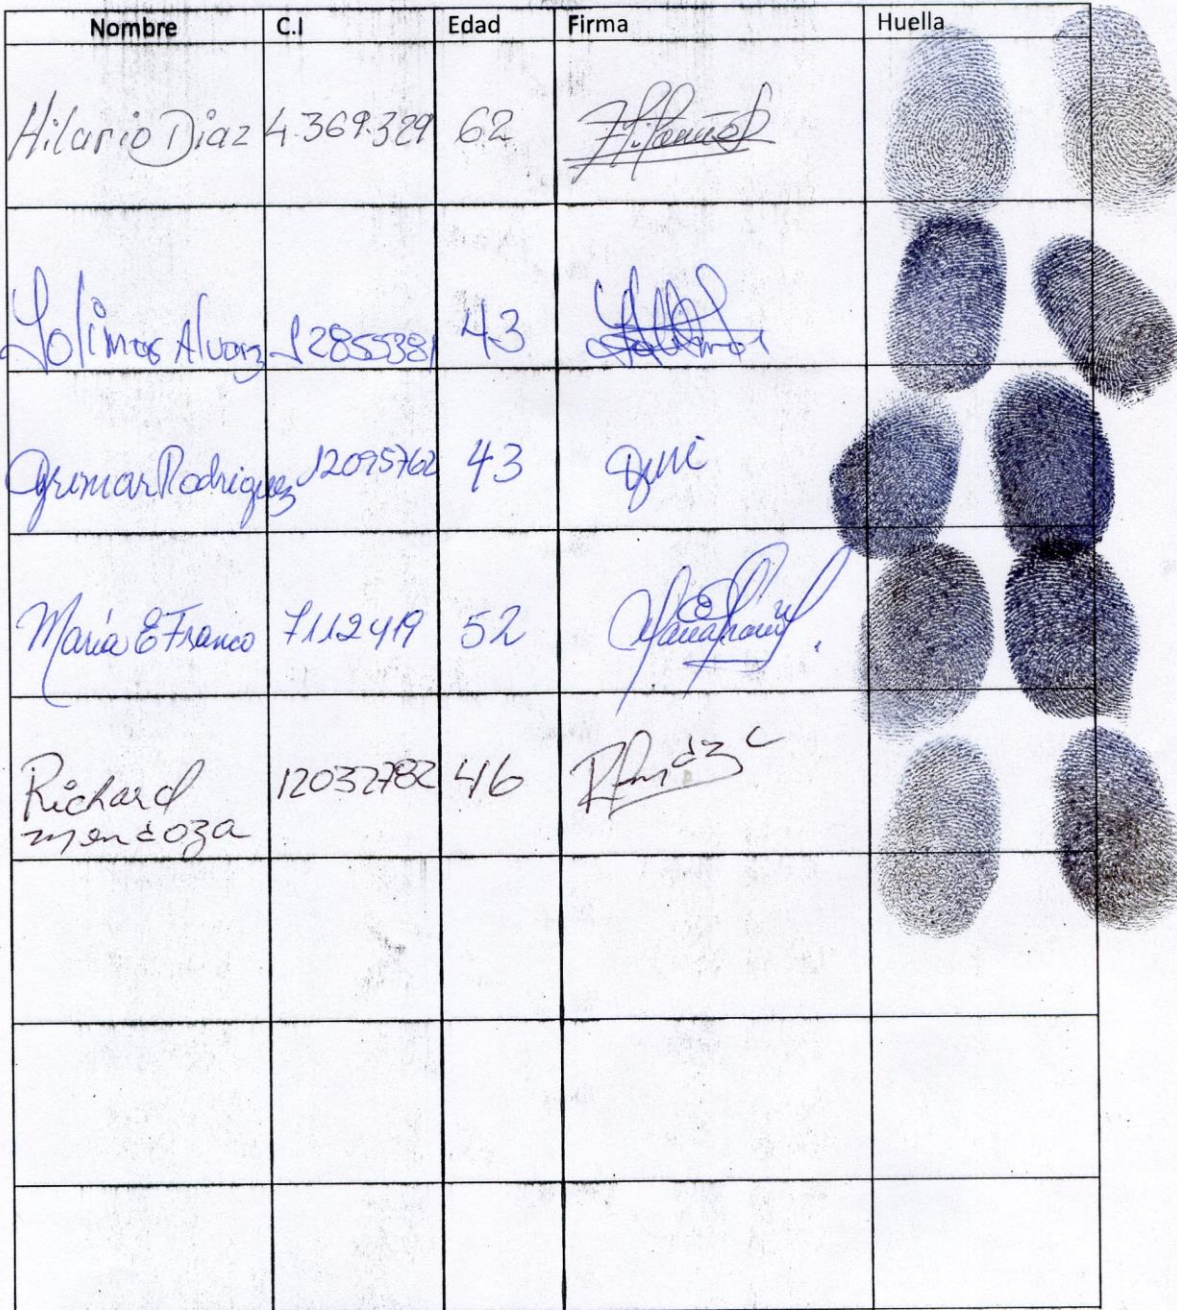 Nombre C.I Edad Firma Huella
Hilario Diaz 4.369.329 62
Solimar Alvarz 12855381 43
Rodriguez 12095762 43
María E Franco 7112419 52
Richard 12032782 46
mendoza